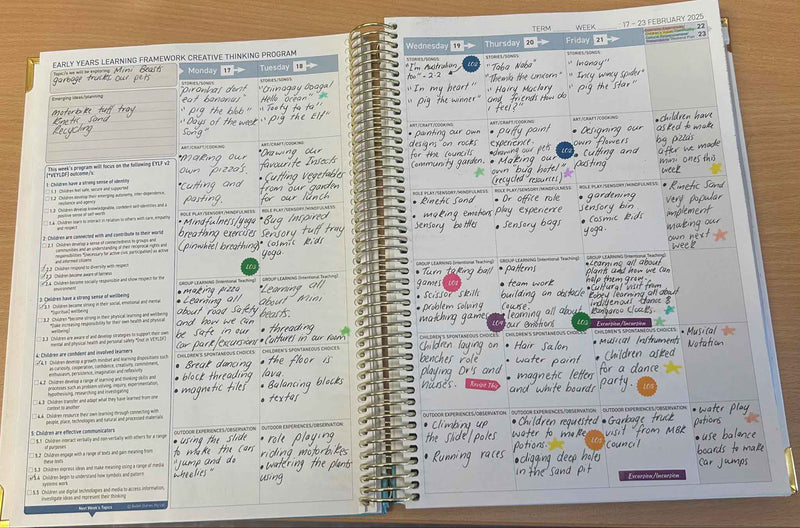 EARLY YEARS LEARNING FRAMEWORK CREATIVE THINKING PROGRAM
Topic/s we will be exploring Mini Beasts
garbage trucks Our pets
Emerging ideas/planning
motorbike tuff tray
Kinetic Sand
Recycling
This week's program will focus on the following EYLF v2
(*VEYLDF) outcome/s:
1: Children have a strong sense of identity
1.1 Children feel safe, secure and supported
1.2 Children develop their emerging autonomy, inter-dependence,
resilience and agency
1.3 Children develop knowledgeable, confident self-identities and a
positive sense of self-worth
1.4 Children learn to interact in relation to others with care, empathy
and respect
2: Children are connected with and contribute to their world
2.1 Children develop a sense of connectedness to groups and
communities and an understanding of their reciprocal rights and
responsibilities *(Necessary for active civic participation) as active
and informed citizens
2.2 Children respond to diversity with respect
2.3 Children become aware of fairness
2.4 Children become socially responsible and show respect for the
environment
3: Children have a strong sense of wellbeing
3.1 Children become strong in their social, emotional and mental
*(spiritual) wellbeing
3.2 Children become strong in their physical learning and wellbeing
*(take increasing responsibility for their own health and physical
wellbeing)
3.3 Children are aware of and develop strategies to support their own
mental and physical health and personal safety
4: Children are confident and involved learners
4.1 Children develop a growth mindset and learning dispositions such
as curiosity, cooperation, confidence, creativity, commitment,
enthusiasm, persistence, imagination and reflexivity
4.2 Children develop a range of learning and thinking skills and
processes such as problem solving, inquiry, experimentation,
hypothesising, researching and investigating
4.3 Children transfer and adapt what they have learned from one
context to another
4.4 Children resource their own learning through connecting with
people, place, technologies and natural and processed materials
5: Children are effective communicators
5.1 Children interact verbally and non-verbally with others for a range
of purposes
5.2 Children engage with a range of texts and gain meaning from
these texts
5.3 Children express ideas and make meaning using a range of media
5.4 Children begin to understand how symbols and pattern
systems work
5.5 Children use digital technologies and media to access information,
investigate ideas and represent their thinking
Next Week's Topics
Monday 17
STORIES/SONGS:
"Piranhas dont
eat bananas"
"pig the blob"
"Days of the week
song"
ART/CRAFT/COOKING:
• Making our
own pizza's.
• Cutting and
pasting.
ROLE PLAY/SENSORY/MINDFULNESS:
• Mindfulness/yoga
breathing exercises
(pinwheel breathing)
LO3
GROUP LEARNING (Intentional Teaching)
• making pizza
• Learning all
about road safety
and how we can
be safe in our
car park/excursions
CHILDREN'S SPONTANEOUS CHOICES:
• Break dancing
• block threading
• magnetic tiles
OUTDOOR EXPERIENCES/OBSERVATION:
• using the slide
to make the cars
"jump and do
wheelies"
Tuesday 18
STORIES/SONGS:
Hello ocean"
"Tooty ta ta"
"pig the Elf"
ART/CRAFT/COOKING:
• Drawing our
favourite Insects
• Cutting vegetables
from our garden
for our lunch
ROLE PLAY/SENSORY/MINDFULNESS:
• Bug inspired
sensory tuff tray
• Cosmic Kids
yoga.
GROUP LEARNING (Intentional Teaching)
• Learning all
about Mini
beasts.
• threading
• Cultures in our room
CHILDREN'S SPONTANEOUS CHOICES:
• the floor is
lava
• Balancing blocks
• textas
OUTDOOR EXPERIENCES/OBSERVATION:
• role playing
riding motorbikes
• watering the plants
using
TERM WEEK : 17 – 23 FEBRUARY 2025
Wednesday 19
STORIES/SONGS:
"I'm Australian
too" - 2.2
LO2
"In my heart"
"pig the winner"
ART/CRAFT/COOKING:
• painting our own
designs on rocks
for the councils
Community garden.
ROLE PLAY/SENSORY/MINDFULNESS:
• Kinetic sand
• making emotions
sensory bottles
GROUP LEARNING (Intentional Teaching)
• Turn taking ball
games
LO1
• scissor skills
• problem solving
matching games
CHILDREN'S SPONTANEOUS CHOICES:
Children laying on
benches role
playing Dr's and
nurses.
Revisit This
OUTDOOR EXPERIENCES/OBSERVATION:
• Climbing up
the slide/poles
• Running races
Thursday 20
STORIES/SONGS:
"Taba Naba"
"Thelma the unicorn"
"Hairy Maclary
and friends How do I
feel?"
ART/CRAFT/COOKING:
• puffy paint
experience.
• drawing our pets
LO2
• Making our
own bug hotel"
(recycled resources)
ROLE PLAY/SENSORY/MINDFULNESS:
• Dr office role
play experience
• Sensory bags
GROUP LEARNING (Intentional Teaching)
• patterns
• team work
building an obstacle
course"
• learning all about
our emotions
LO3
CHILDREN'S SPONTANEOUS CHOICES:
• Hair salon
• water paint
• magnetic letters
and white boards
OUTDOOR EXPERIENCES/OBSERVATION:
• Children requested
water to make
potions.
LO5
• digging deep holes
in the sand pit
Friday 21
STORIES/SONGS:
"Incy wincy spider"
"pig the star"
ART/CRAFT/COOKING:
• Designing our
own flowers
• Cutting and
pasting
ROLE PLAY/SENSORY/MINDFULNESS:
• gardening
sensory bin
• Cosmic Kids
yoga.
GROUP LEARNING (Intentional Teaching)
• Learning all about
plants and how we can
help them grow.
• Cultural visit from
learning all about
indigenous dance &
Kangaroo
Excursion/Incursion
CHILDREN'S SPONTANEOUS CHOICES:
Musical Instruments
• Children asked
for a dance
party.
LO5
OUTDOOR EXPERIENCES/OBSERVATION:
• Garbage truck
visit from MBR
Council
Excursion/Incursion
22
23
• Children have
asked to make
big pizzas
after we made
mini ones this
week
• Kinetic Sand
very popular
implement
making our
own next
week
• Musical
Notation
• water play
potions
• use balance
boards to make
car jumps